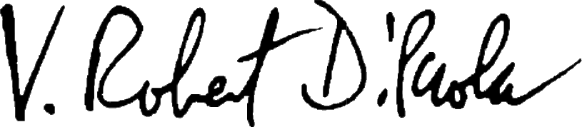 V. Robert DiPaola